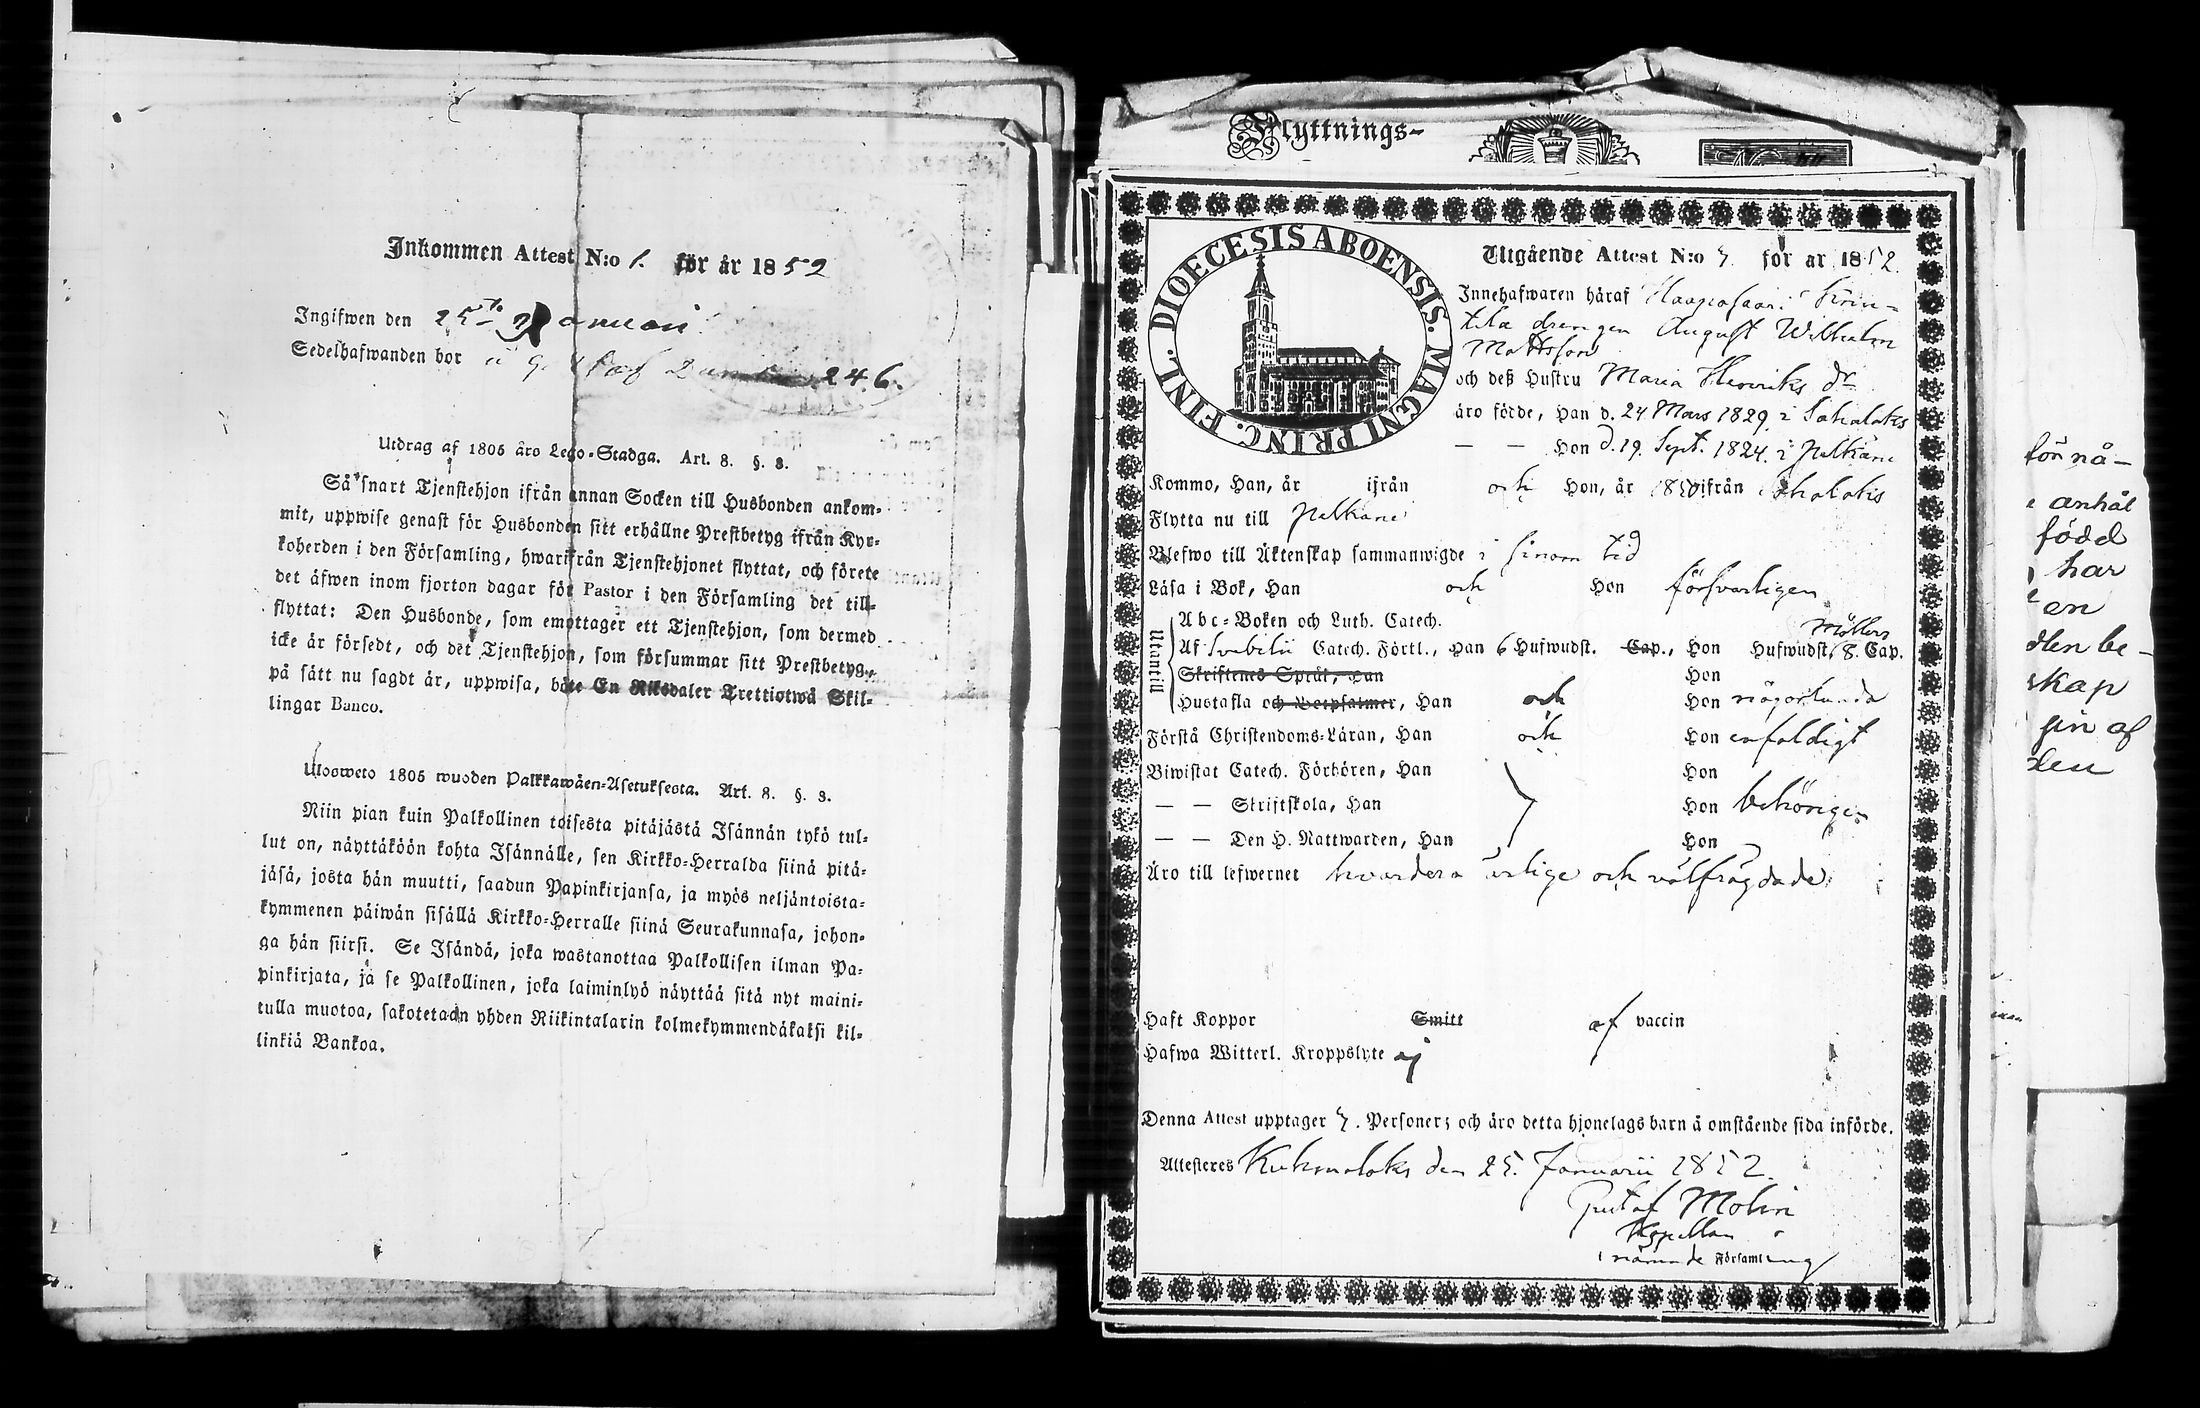 Inkommen Attest N:o 1. för år 1852
Ingifwen den 25te Januari
Sedelhafwanden bor 246.
Utdrag af 1805 års Lego-Stadga. Art. 8. §. 3.
Så snart Tjenstehjon ifrån annan Socken till Husbonden ankom-
mit, uppwise genast för Husbonden sitt erhållne Prestbetyg ifrån Kyr-
koherden i den Församling, hwarifrån Tjenstehjonet flyttat, och förete
det äfwen inom fjorton dagar för Pastor i den Församling det till-
flyttat: Den Husbonde, som emottager ett Tjenstehjon, som dermed
icke är försedt, och det Tjenstehjon, som försummar sitt Prestbetyg,
på sätt nu sagdt är, uppwisa, böte En Riksdaler Trettiotwå Skil-
lingar Banco.
Ulosweto 1805 wuoden Palkkawäen-Asetuksesta. Art. 8. §. 3.
Niin pian kuin Palkollinen toisesta pitäjästä Isännän tykö tul-
lut on, näyttäköön kohta Isännälle, sen Kirkko-Herralda siinä pitä-
jäsä, josta hän muutti, saadun Papinkirjansa, ja myös neljäntoista-
kymmenen päiwän sisällä Kirkko-Herralle siinä Seurakunnasa, johon-
ga hän siirsi. Se Isändä, joka wastanottaa Palkollisen ilman Pa-
pinkirjata, ja se Palkollinen, joka laiminlyö näyttää sitä nyt maini-
tulla muotoa, sakotetaan yhden Riikintalarin kolmekymmendäkaksi kil-
linkiä Bankoa.
Flyttnings-
DIOECESIS ABOENSIS. MAGNI PRINC. FINL.
Utgående Attest N:o 7 för år 1852.
Innehafwaren häraf Haapasaari
drengen August Wilhelm
Mattsson
och deß Hustru Maria Henriks dr
äro födde, Han d. 24 Mars 1829. i Sahalaks
— — Hon d. 19. Sept. 1824. i Pälkäne
Kommo, Han, år ifrån och Hon, år 1850 ifrån Sahalaks
Flytta nu till Pälkäne
Blefwo till Äktenskap sammanwigde i sinom tid
Läsa i Bok, Han och Hon försvarligen
Utantill
Abc-Boken och Luth. Catech.
Möllers
Af Svebilii Catech. Förtl., Han 6 Hufwudst. Cap., Hon Hufwudst. 8. Cap.
Skriftenes Språk, Han Hon
Hustafla och Botpsalmer, Han och Hon någorlunda
Förstå Christendoms-Läran, Han och Hon enfaldigt
Biwistat Catech. Förhören, Han Hon
— — Skriftskola, Han Hon behörigen
— — Den H. Nattwarden, Han Hon
Äro till lefwernet hvardera ärlige och välfrägdade
Haft Koppor Smitt af vaccin
Hafwa Witterl. Kroppslyte ej
Denna Attest upptager 7. Personer; och äro detta hjonelags barn å omstående sida införde.
Attesteres Kuhmalaks den 25. Januarii 1852.
Gustaf Molin
Kapellan
i nämnde Församling
för nå-
anhål
född
har
en
den be-
skap
af
den